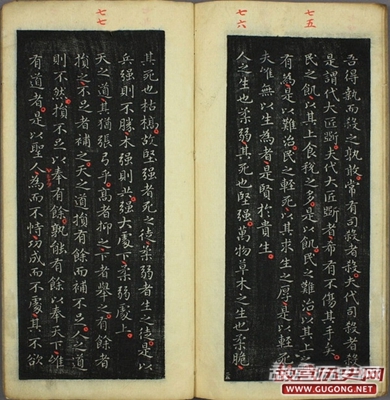 七五
吾得執而殺之孰敢常有司殺者殺夫代司殺者殺
是謂代大匠斲夫代大匠斲者希有不傷其手矣
民之飢以其上食稅之多是以飢民之難治以其上
有為是以難治民之輕死以其求生之厚是以輕死
夫惟無以生為者是賢於貴生
七六
人之生也柔弱其死也堅強萬物草木之生也柔脆
其死也枯槁故堅強者死之徒柔弱者生之徒是以
兵強則不勝木強則共強大處下柔弱處上
七七
天之道其猶張弓乎高者抑之下者舉之有餘者
損之不足者補之天之道損有餘而補不足人之道
則不然損不足以奉有餘孰能有餘以奉天下唯
有道者是以聖人為而不恃功成而不處其不欲
历史网
WWW.GUGONG.NET